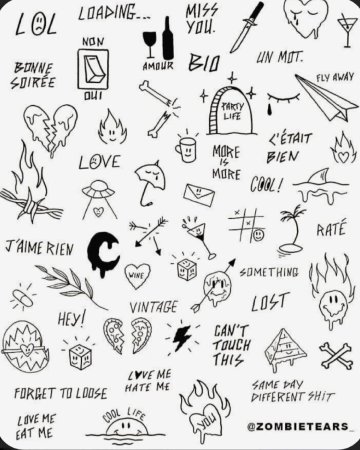 LOL
LOADING...
MISS
YOU.
NON
OUI
AMOUR
BIO
UN MOT.
BONNE
SOIRÉE
FLY AWAY
PARTY
LIFE
C'ÉTAIT
BIEN
LOVE
MORE
IS
MORE
COOL!
RATÉ
J'AIME RIEN
WINE
SOMETHING
LOST
HEY!
VINTAGE
CAN'T
TOUCH
THIS
FORGET TO LOOSE
LOVE ME
HATE ME
SAME DAY
DIFFERENT SHIT
LOVE ME
EAT ME
COOL LIFE
YOU
@ZOMBIETEARS_